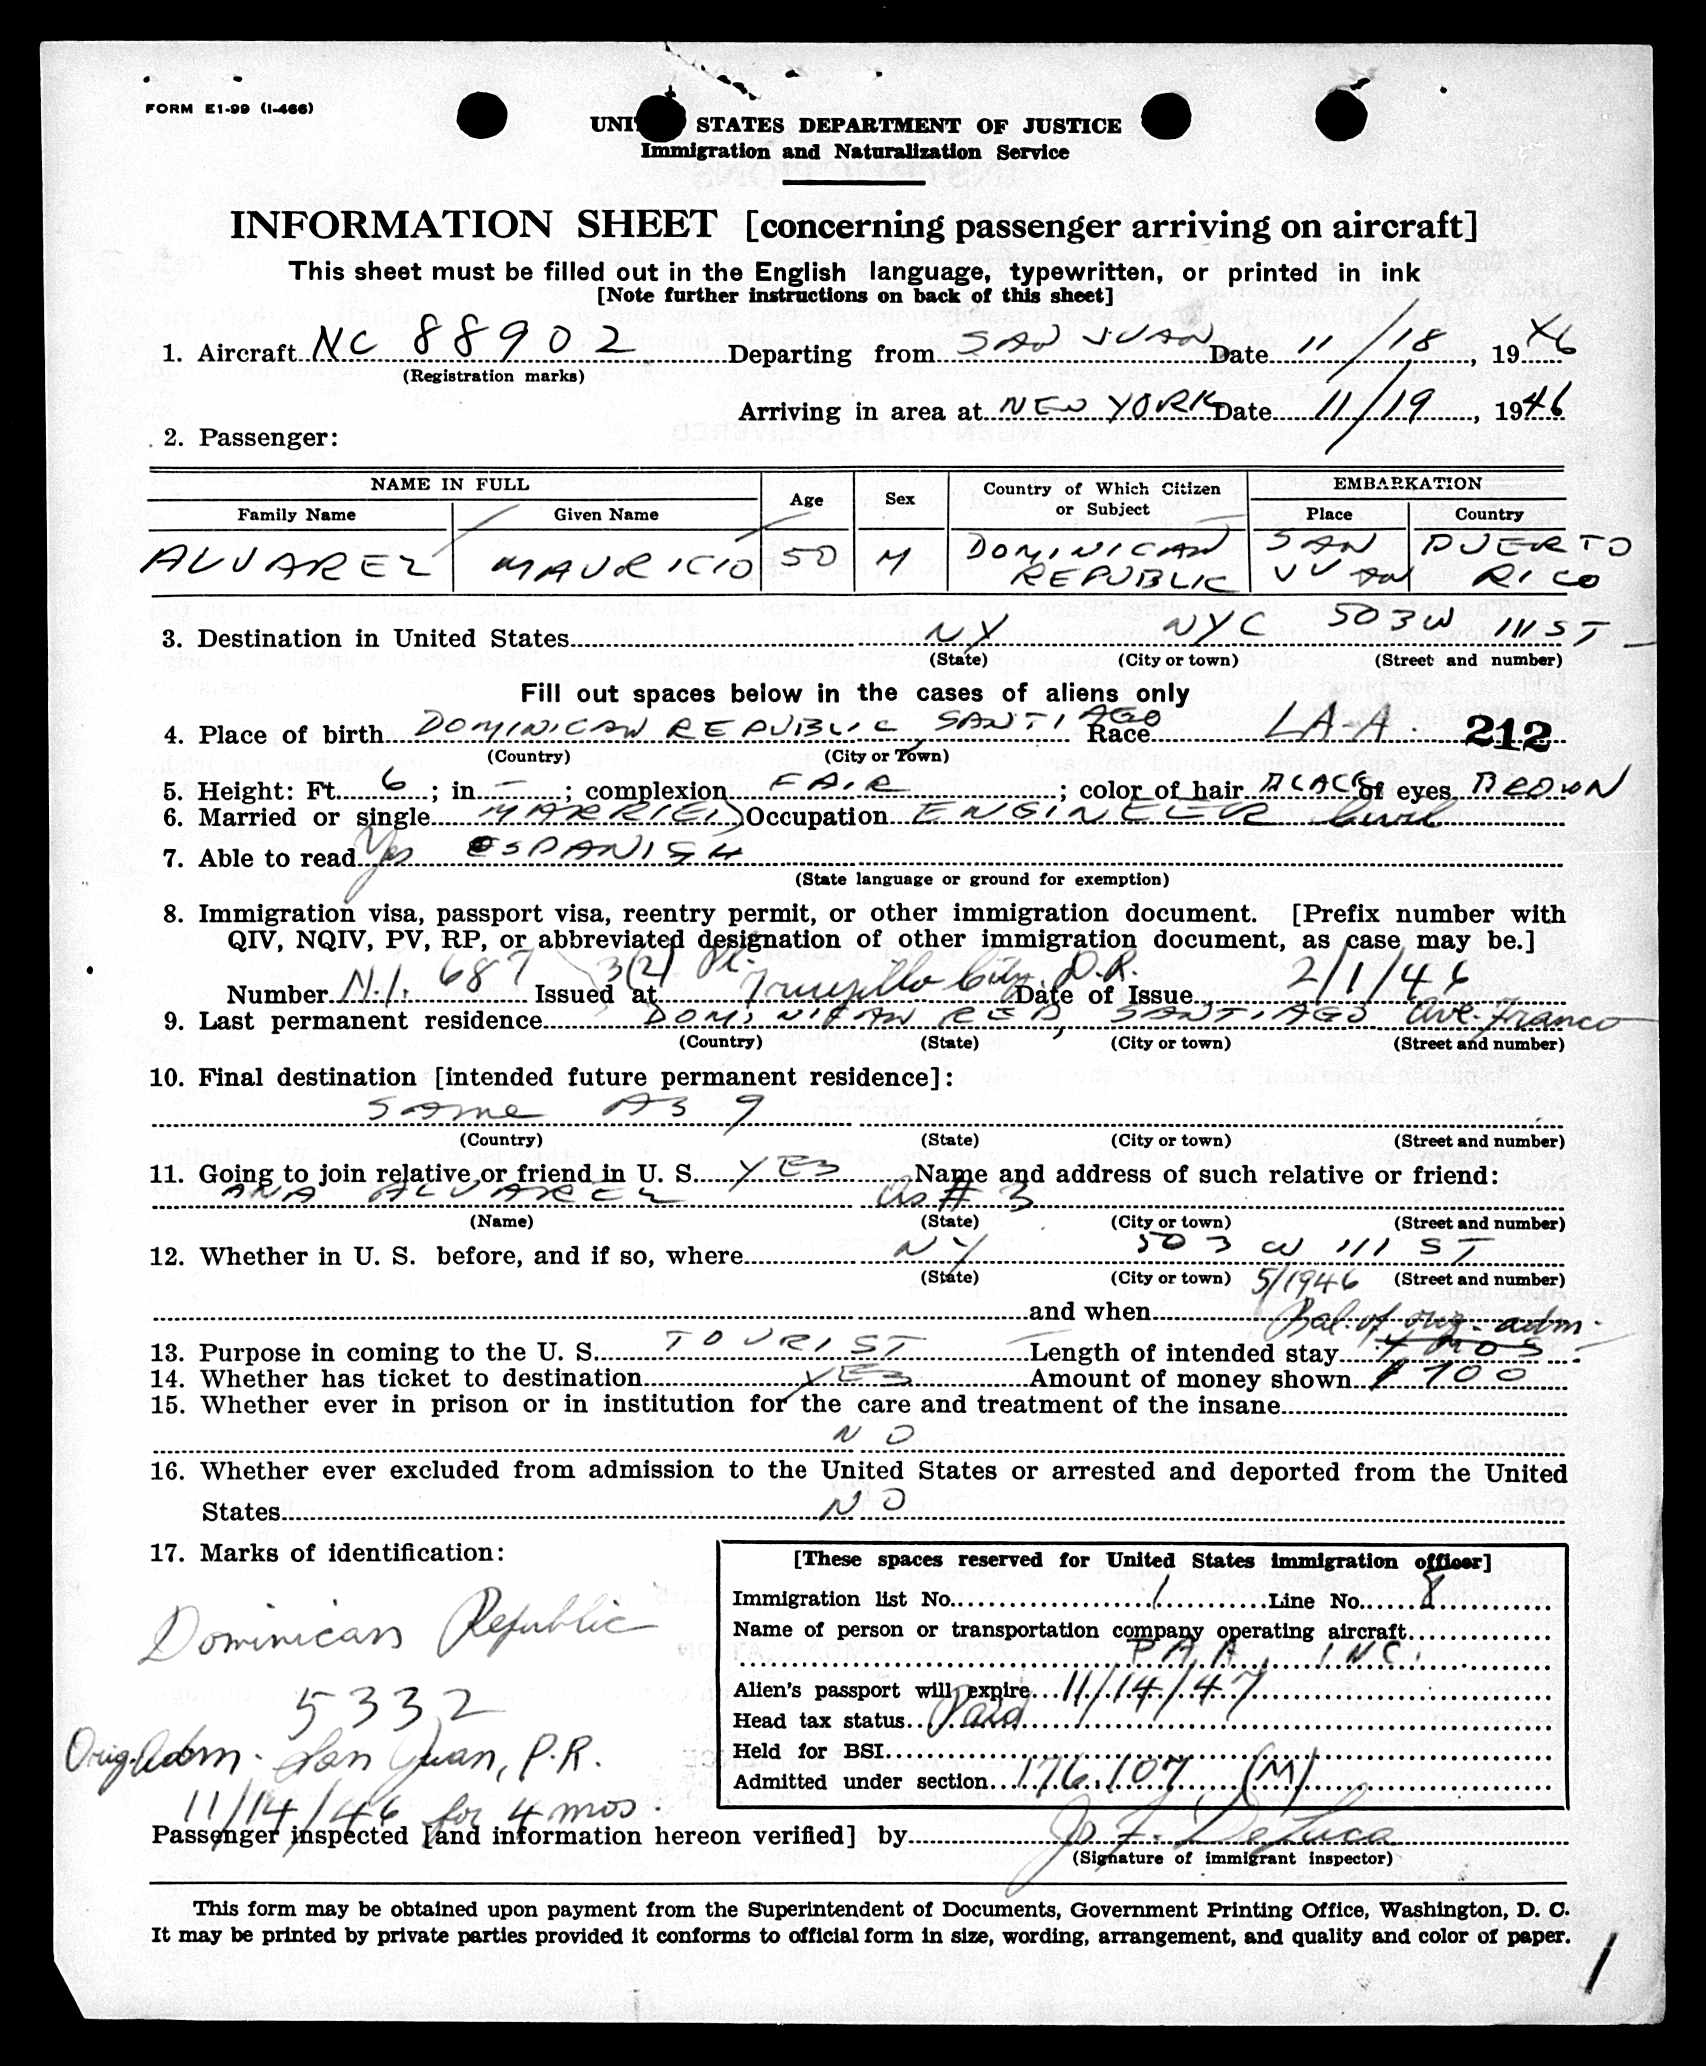 FORM E1-99 (I-466)
UNITED STATES DEPARTMENT OF JUSTICE
Immigration and Naturalization Service
INFORMATION SHEET [concerning passenger arriving on aircraft]
This sheet must be filled out in the English language, typewritten, or printed in ink
[Note further instructions on back of this sheet]
1. Aircraft NC 88902 Departing from SAN JUAN Date 11/18, 1946
(Registration marks)
Arriving in area at NEW YORK Date 11/19, 1946
2. Passenger:
NAME IN FULL Age Sex Country of Which Citizen or Subject EMBARKATION
Family Name Given Name Place Country
ALVAREZ MAURICIO 50 M DOMINICAN REPUBLIC SAN JUAN PUERTO RICO
3. Destination in United States NY NYC 503 W 111 ST
(State) (City or town) (Street and number)
Fill out spaces below in the cases of aliens only
4. Place of birth DOMINICAN REPUBLIC, SANTIAGO Race LA-A. 212
(Country) (City or Town)
5. Height: Ft. 6; in. –; complexion FAIR; color of hair BLACK of eyes BROWN
6. Married or single MARRIED Occupation ENGINEER Civil
7. Able to read Yes ESPANISH
(State language or ground for exemption)
8. Immigration visa, passport visa, reentry permit, or other immigration document. [Prefix number with
QIV, NQIV, PV, RP, or abbreviated designation of other immigration document, as case may be.]
Number N.I. 687 3(2) Issued at Trujillo City, D.R. Date of Issue 2/1/46
9. Last permanent residence DOMINICAN REP, SANTIAGO Ave. Franco
(Country) (State) (City or town) (Street and number)
10. Final destination [intended future permanent residence]:
SAME AS 9
(Country) (State) (City or town) (Street and number)
11. Going to join relative or friend in U. S. YES Name and address of such relative or friend:
ANA ALVAREZ As # 3
(Name) (State) (City or town) (Street and number)
12. Whether in U. S. before, and if so, where NY 503 W 111 ST
(State) (City or town) 5/1946 (Street and number)
and when
Bal. of orig. adm.
13. Purpose in coming to the U. S. TOURIST Length of intended stay 4 MOS
14. Whether has ticket to destination YES Amount of money shown $ 700
15. Whether ever in prison or in institution for the care and treatment of the insane
NO
16. Whether ever excluded from admission to the United States or arrested and deported from the United
States NO
17. Marks of identification:
Dominican Republic
5332
Orig. Adm. San Juan, P.R.
11/14/46 for 4 mos.
[These spaces reserved for United States immigration officer]
Immigration list No. 1 Line No. 8
Name of person or transportation company operating aircraft
P.A.A. INC.
Alien's passport will expire 11/14/47
Head tax status Paid
Held for BSI
Admitted under section 176.107 (M)
Passenger inspected [and information hereon verified] by J. F. DeLuca
(Signature of immigrant inspector)
This form may be obtained upon payment from the Superintendent of Documents, Government Printing Office, Washington, D. C.
It may be printed by private parties provided it conforms to official form in size, wording, arrangement, and quality and color of paper.
1